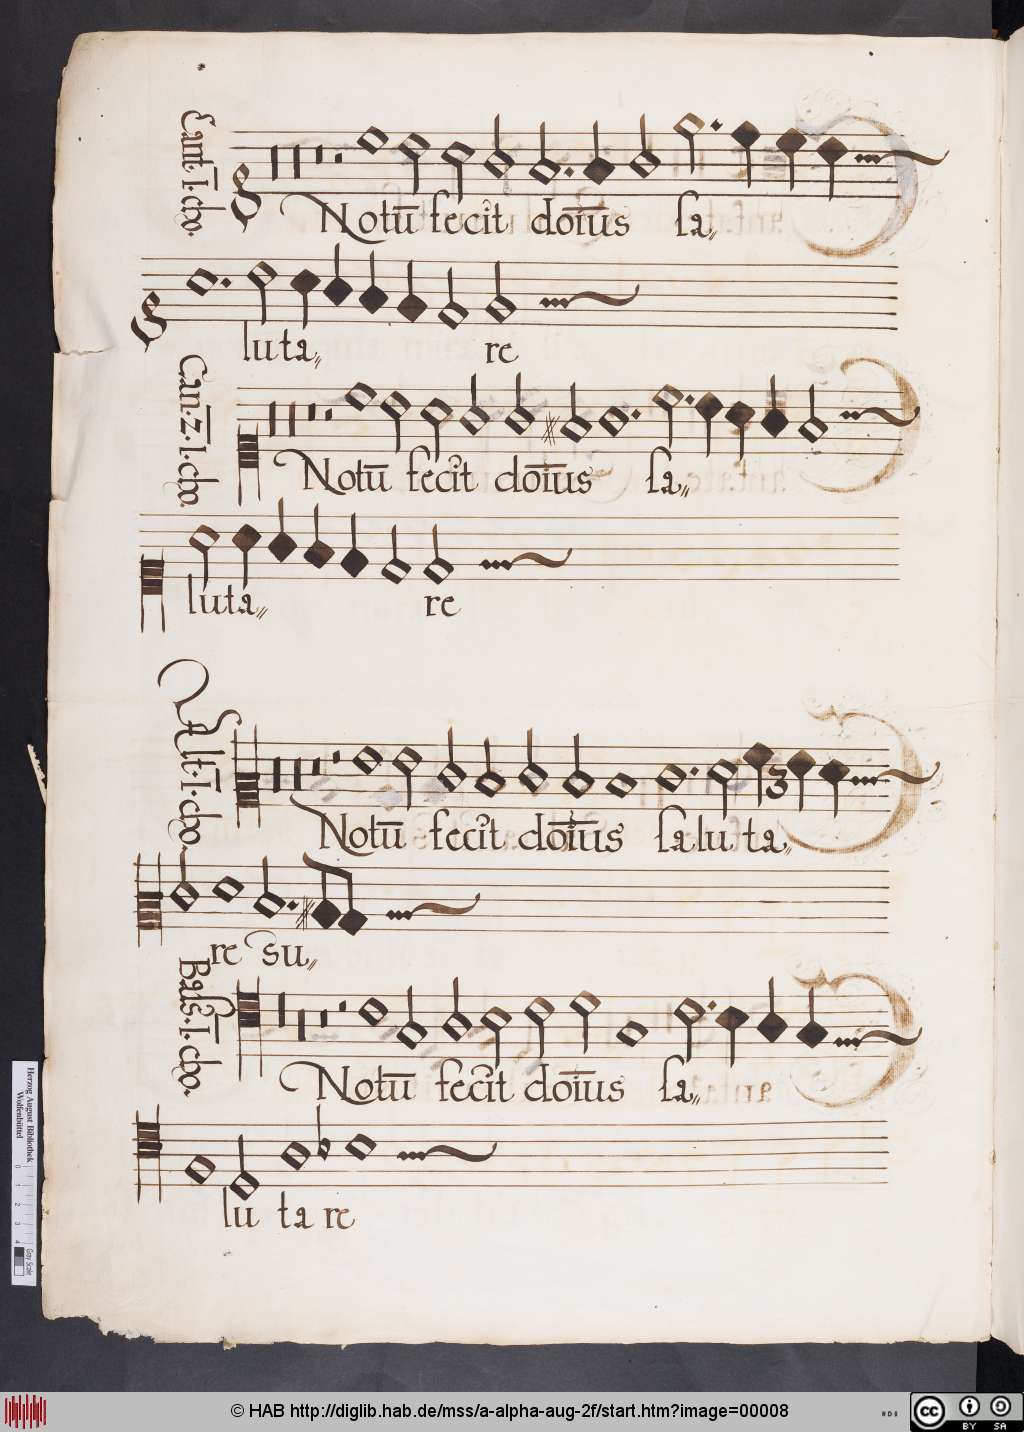 Cant. I. cho.
Notū fecit doīus sa〃
luta〃 re
Can. 2. I. cho.
Notū fecit doīus sa〃
luta〃 re
Alt. I. cho.
Notū fecit doīus saluta〃
re su〃
Bass. I. cho.
Notū fecit doīus sa〃
luta re
Herzog August Bibliothek
Wolfenbüttel
0 1 2 3 4
Gray Scale
© HAB http://diglib.hab.de/mss/a-alpha-aug-2f/start.htm?image=00008
cc BY SA